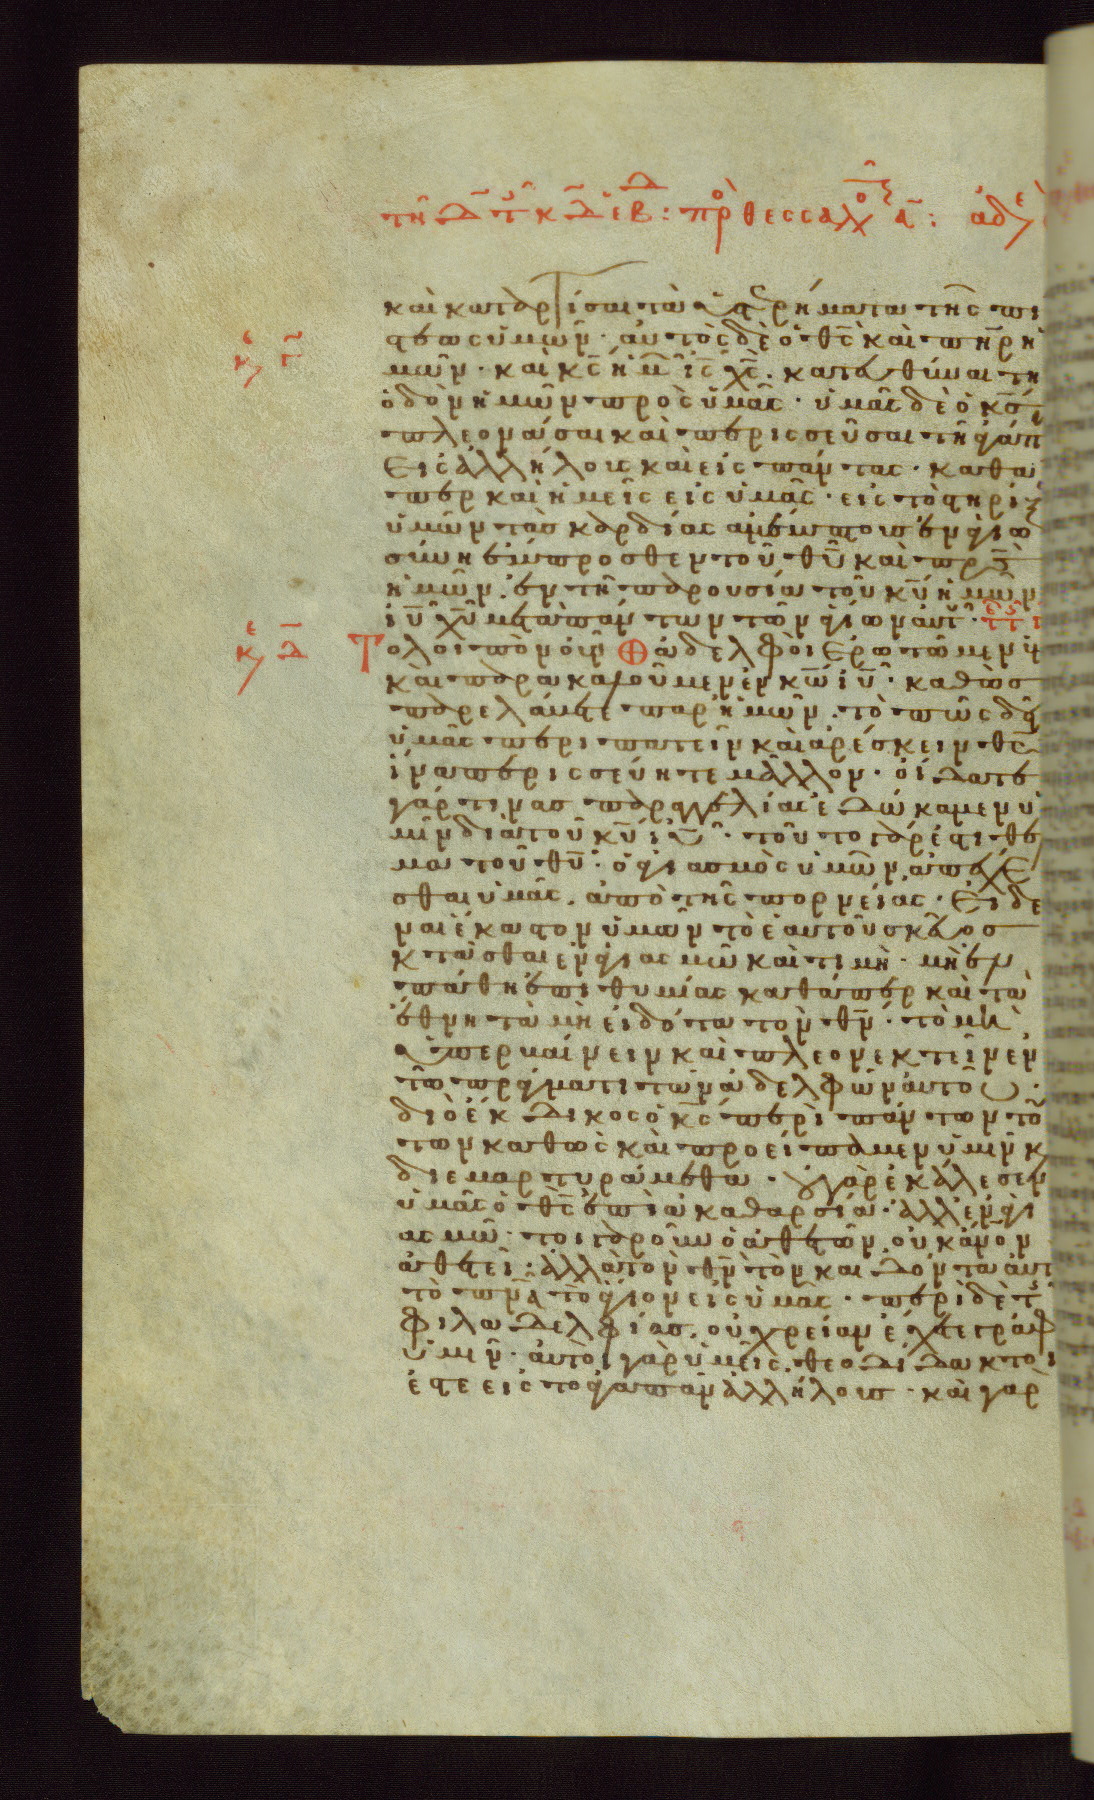 τῆ Δ τῆς κδ ἑβ: πρὸς θεσσαλ α: ἀδελ
καὶ καταρτίσαι τὰ ὑστερήματα τῆς πι
στεως ὑμῶν· αὐτὸς δὲ ὁ θς καὶ πηρ ἡ
κε γ
μῶν· καὶ κς ἡμ ις χς· κατευθύναι τὴ
ὁδὸν ἡμῶν πρὸς ὑμᾶς· ὑμᾶς δὲ ὁ κς
πλεονάσαι καὶ περισσεῦσαι τῆ ἀγάπ
Εἰς ἀλλήλους καὶ εἰς πάντας· καθα
περ καὶ ἡμεῖς εἰς ὑμᾶς· εἰς τὸ στηρίξ
ὑμῶν τὰς καρδίας ἀμέμπτους ἐν ἁγιω
σύνη ἔμπροσθεν τοῦ θυ καὶ πρς
ἡμῶν· ἐν τῆ παρουσία τοῦ κυ ἡμῶν
ιυ χυ μετὰ πάντων τῶν ἁγίων αὐτ·
κε Δ
Το λοιπὸν οὖν ἀδελφοὶ Ἐρωτῶμεν ὑ
καὶ παρακαλοῦμεν ἐν κω ιυ· καθὼς
παρελάβετε παρ ἡμῶν· τὸ πῶς δεῖ
ὑμᾶς περιπατεῖν καὶ ἀρέσκειν θω
ἵνα περισσεύητε μᾶλλον· οἴδατε
γάρ τινας παραγγελίας ἐδώκαμεν ὑ
μῖν διὰ τοῦ κυ ιυ· τοῦτο γάρ ἐστι θέλη
μα τοῦ θυ· ὁ ἁγιασμὸς ὑμῶν ἀπέχε
σθαι ὑμᾶς· ἀπὸ τῆς πορνείας· Εἰδέ
ναι ἕκαστον ὑμῶν τὸ ἑαυτοῦ σκεῦος
κτᾶσθαι ἐν ἁγιασμῶ καὶ τιμῆ· μὴ ἐν
πάθη ἐπιθυμίας καθάπερ καὶ τὰ
ἔθνη τὰ μὴ εἰδότα τὸν θν· τὸ μὴ
ὑπερβαίνειν καὶ πλεονεκτεῖν ἐν
τῶ πράγματι τῶν ἀδελφῶν αὐτοῦ·
διὸ ἔκδικος ὁ κς περὶ πάντων τού
των καθὼς καὶ προείπαμεν ὑμῖν κ
διεμαρτυράμεθα· οὐ γὰρ ἐκάλεσεν
ὑμᾶς ὁ θς ἐπὶ ἀκαθαρσία· ἀλλ ἐν ἁγι
ασμῶ· τοιγαροῦν ὁ ἀθετῶν οὐκ ἄνον
ἀθετεῖ· ἀλλὰ τὸν θν τὸν καὶ δόντα αὐτ
τὸ πνα τὸ ἅγιον εἰς ὑμᾶς· περὶ δὲ τῆς
φιλαδελφίας· οὐ χρείαν ἔχετε γράφ
ὑμῖν· αὐτοὶ γὰρ ὑμεῖς θεοδίδακτοί
ἐστε εἰς τὸ ἀγαπᾶν ἀλλήλους· καὶ γὰρ